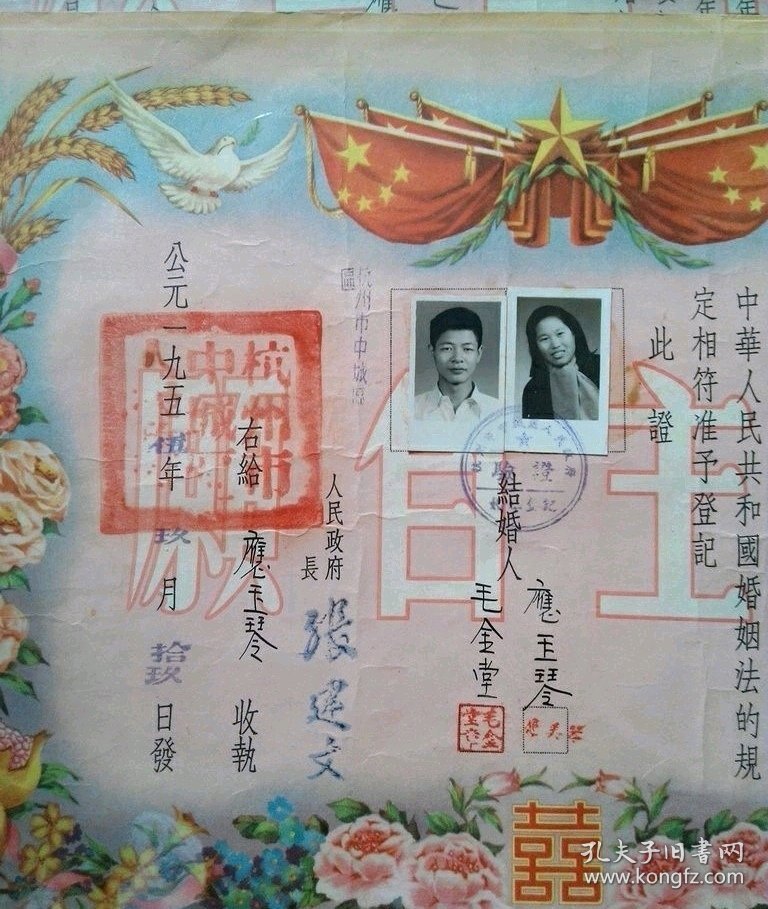 中華人民共和國婚姻法的規
定相符准予登記
此證
結婚人
應玉琴
毛金堂
杭州市中城區
人民政府
長
張建文
右給 應玉琴 收執
公元一九五伍年玖月拾玖日發
自主
願
囍
孔夫子旧书网
www.kongfz.com